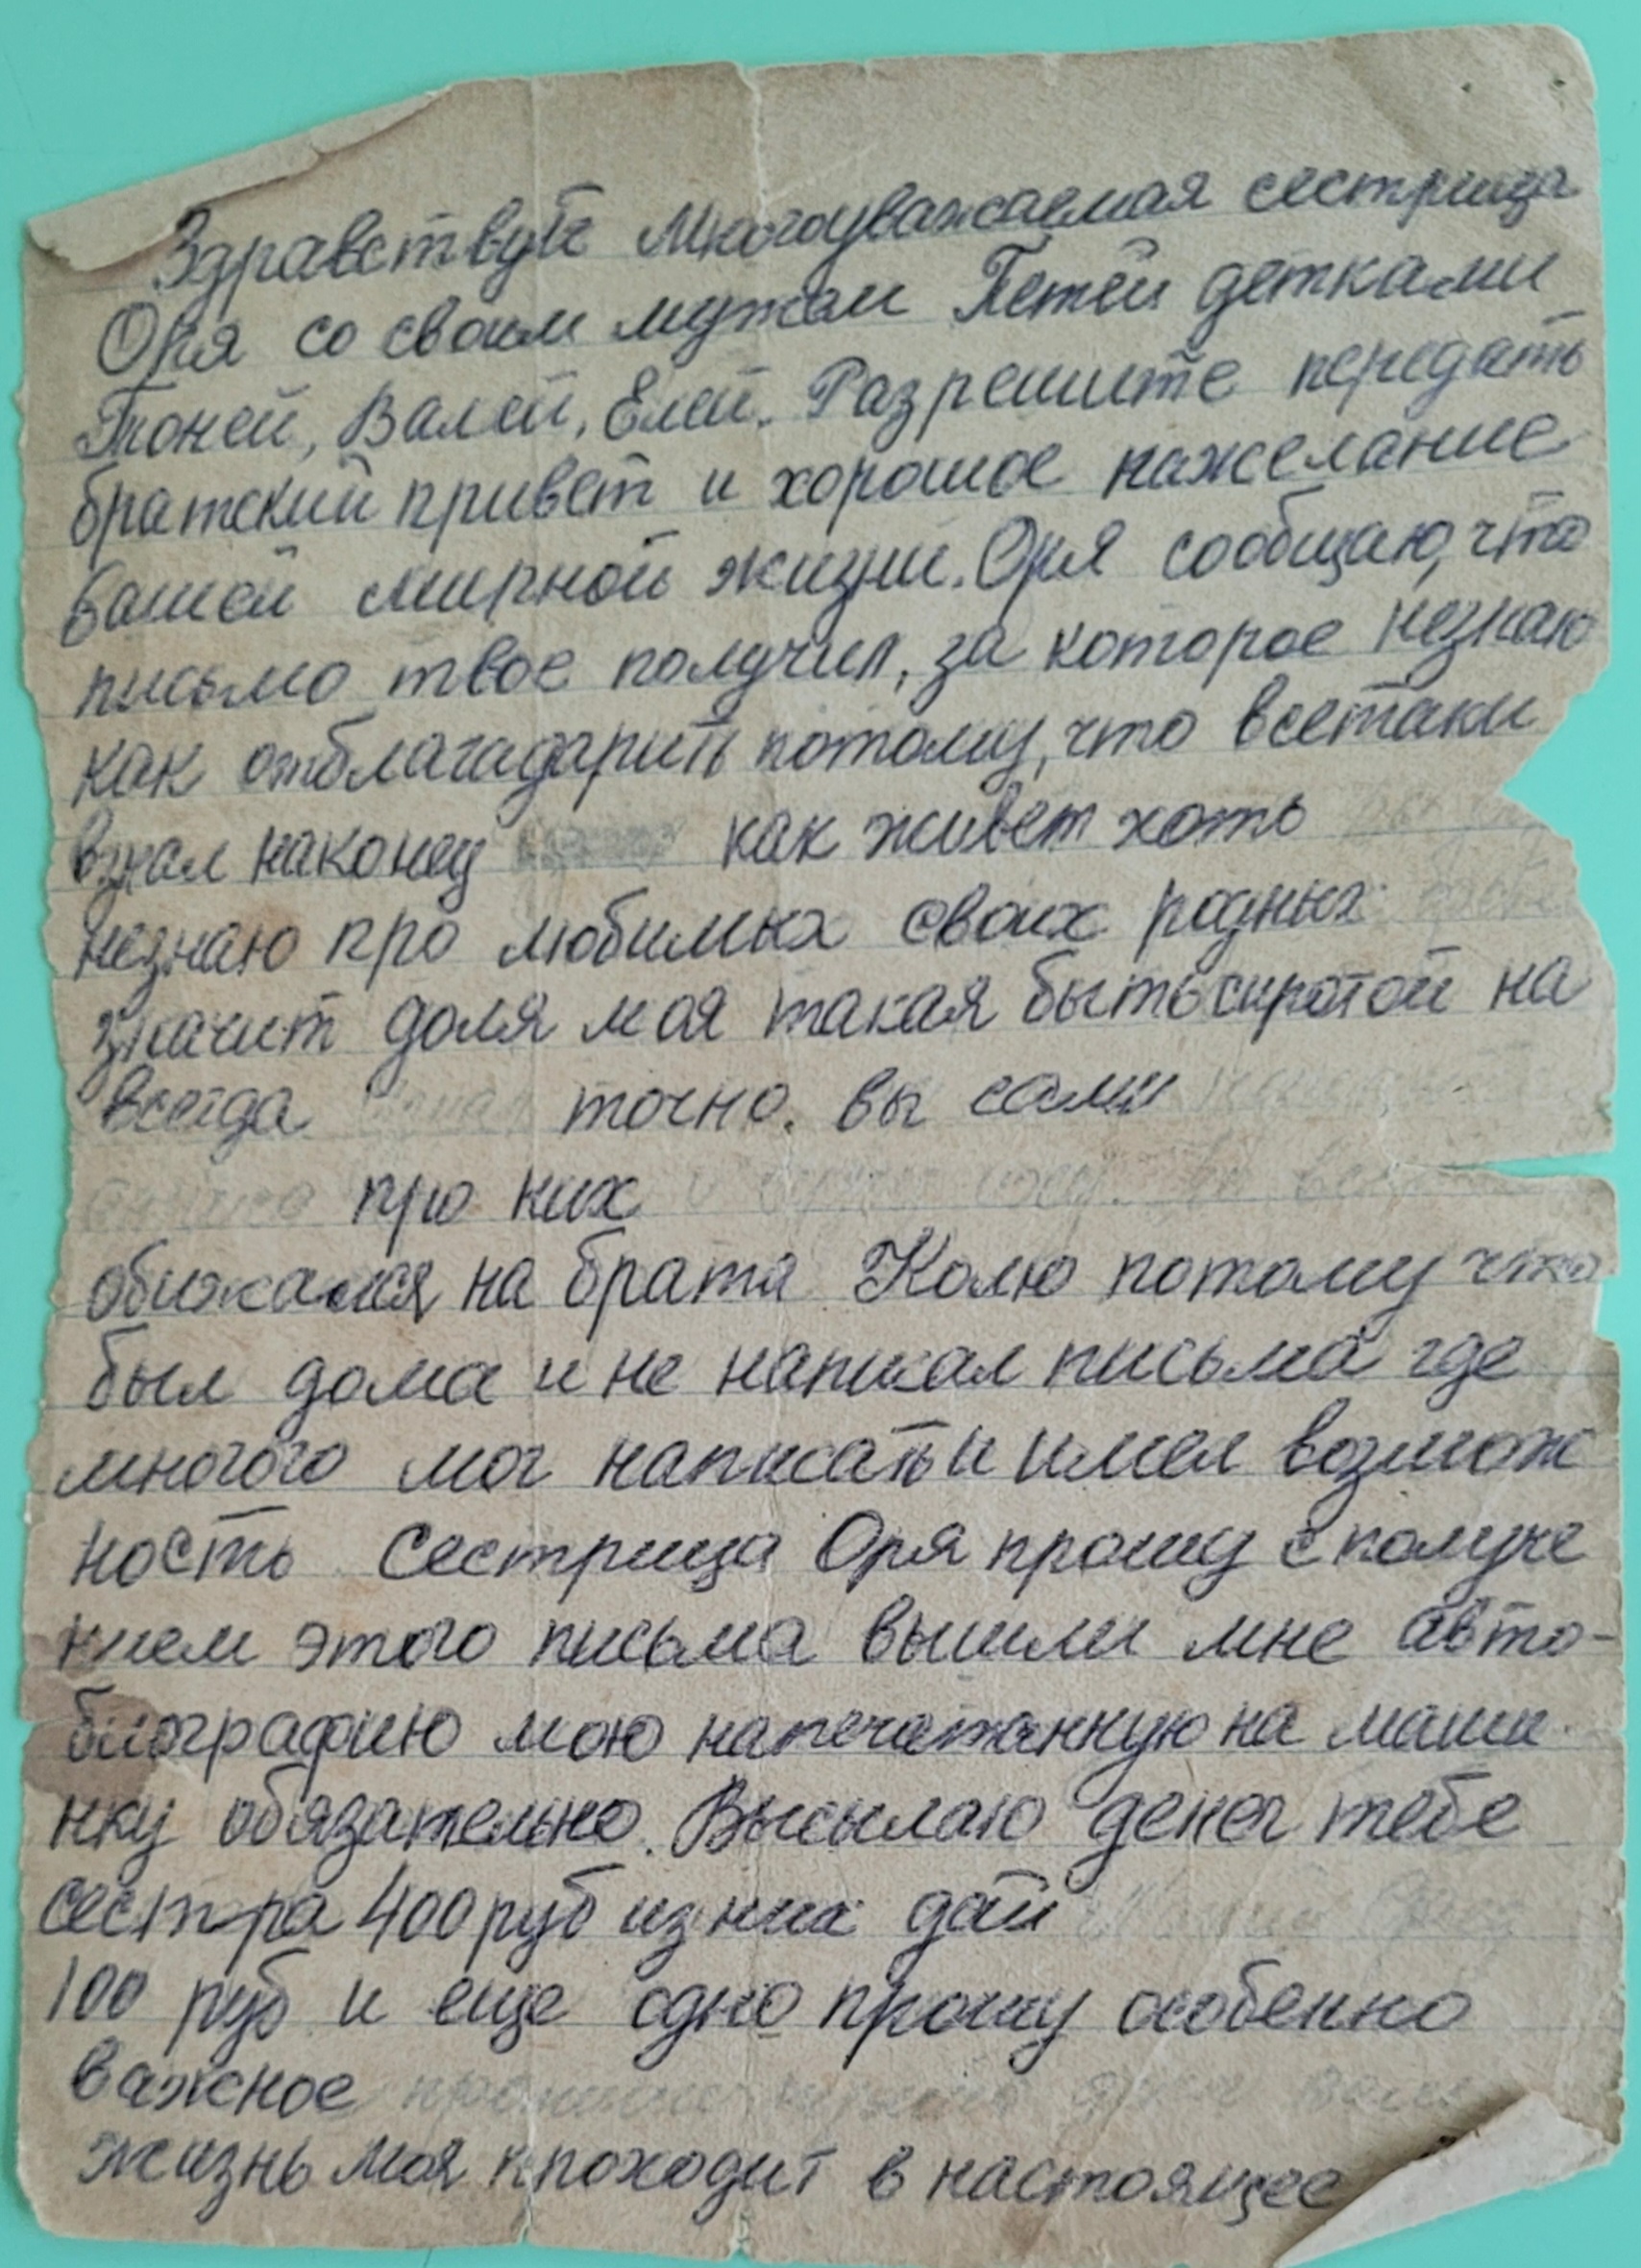 Здравствуй Многоуважаемая сестрица
Оря со своим мужем Петей детками
Тоней, Валей, Елей. Разрешите передать
братский привет и хорошое пажелание
вашей мирной жизни. Оря сообщаю, что
письмо твое получил, за которое незнаю
как отблагадарить потому, что всетаки
взнал наконец как живет хоть
незнаю про любимых своих родных
значит доля моя такая быть сиротой на
всегда точно. вы сами
про них
обижался на брата Колю потому что
был дома и не написал письма где
многого мог написать и имел возмож
ность Сестрица Оря прошу с получе
нием этого письма вышли мне авто-
биографию мою напечатанную на маши
нку обязательно. Высылаю денег тебе
сестра 400 руб из них дай
100 руб и еще одно прошу особенно
важное
жизнь моя проходит в настоящее